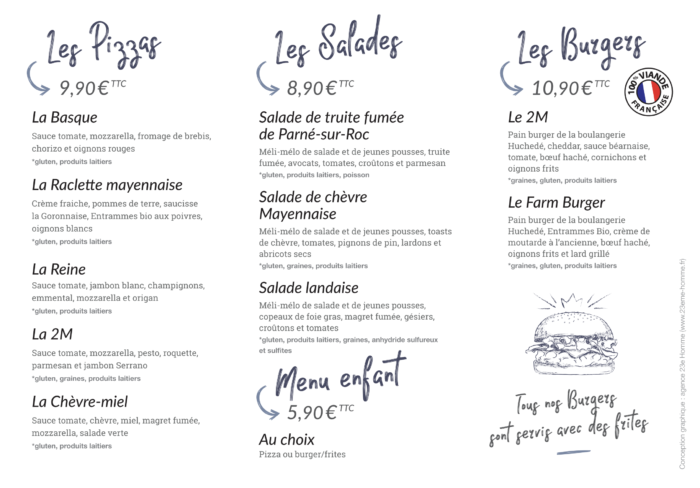 Les Pizzas
9,90€ TTC
La Basque
Sauce tomate, mozzarella, fromage de brebis,
chorizo et oignons rouges
*gluten, produits laitiers
La Raclette mayennaise
Crème fraiche, pommes de terre, saucisse
la Goronnaise, Entrammes bio aux poivres,
oignons blancs
*gluten, produits laitiers
La Reine
Sauce tomate, jambon blanc, champignons,
emmental, mozzarella et origan
*gluten, produits laitiers
La 2M
Sauce tomate, mozzarella, pesto, roquette,
parmesan et jambon Serrano
*gluten, graines, produits laitiers
La Chèvre-miel
Sauce tomate, chèvre, miel, magret fumée,
mozzarella, salade verte
*gluten, produits laitiers
Les Salades
8,90€ TTC
Salade de truite fumée
de Parné-sur-Roc
Méli-mélo de salade et de jeunes pousses, truite
fumée, avocats, tomates, croûtons et parmesan
*gluten, produits laitiers, poisson
Salade de chèvre
Mayennaise
Méli-mélo de salade et de jeunes pousses, toasts
de chèvre, tomates, pignons de pin, lardons et
abricots secs
*gluten, graines, produits laitiers
Salade landaise
Méli-mélo de salade et de jeunes pousses,
copeaux de foie gras, magret fumée, gésiers,
croûtons et tomates
*gluten, produits laitiers, graines, anhydride sulfureux
et sulfites
Menu enfant
5,90€ TTC
Au choix
Pizza ou burger/frites
Les Burgers
10,90€ TTC
100% VIANDE
FRANÇAISE
Le 2M
Pain burger de la boulangerie
Huchedé, cheddar, sauce béarnaise,
tomate, bœuf haché, cornichons et
oignons frits
*graines, gluten, produits laitiers
Le Farm Burger
Pain burger de la boulangerie
Huchedé, Entrammes Bio, crème de
moutarde à l'ancienne, bœuf haché,
oignons frits et lard grillé
*graines, gluten, produits laitiers
Tous nos Burgers
sont servis avec des frites
Conception graphique : agence 23e Homme (www.23eme-homme.fr)